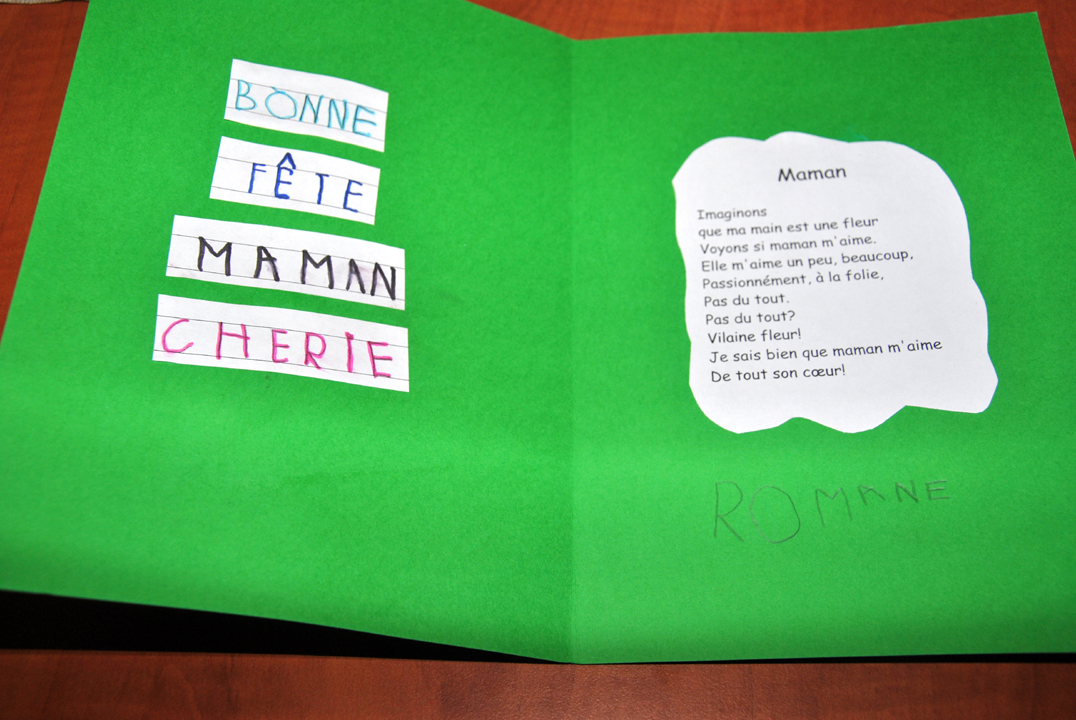 BONNE
FÊTE
MAMAN
CHERIE
Maman
Imaginons
que ma main est une fleur
Voyons si maman m'aime.
Elle m'aime un peu, beaucoup,
Passionnément, à la folie,
Pas du tout.
Pas du tout?
Vilaine fleur!
Je sais bien que maman m'aime
De tout son cœur!
ROMANE